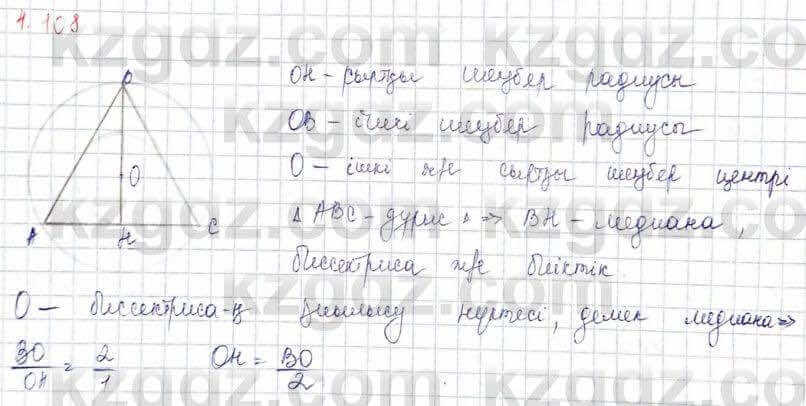 4.108
OH - сыртқы шеңбер радиусы
OB - ішкі шеңбер радиусы
O - ішкі және сыртқы шеңбер центрі
Δ ABC - дұрыс Δ => BH - медиана,
биссектриса және биіктік
O - биссектриса-ң қиылысу нүктесі, демек медиана =>
BO/OH = 2/1 OH = BO/2
B
O
A H C
kzgdz.com